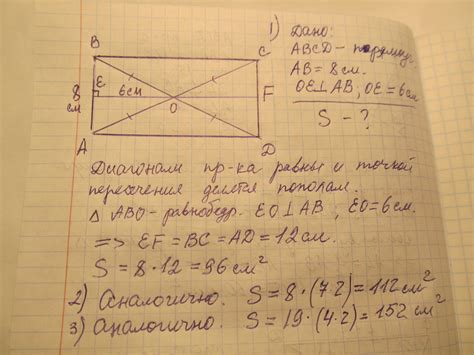 1) Дано:
ABCD – прямоуг.
AB = 8 см.
OE⊥AB, OE = 6 см
S – ?
B
C
8 см
E
6 см
O
F
A
D
Диагонали пр-ка равны и точкой
пересечения делятся пополам.
△ ABO – равнобедр. EO⊥AB, EO = 6 см.
=> EF = BC = AD = 12 см.
S = 8 · 12 = 96 см²
2) Аналогично. S = 8 · (7·2) = 112 см²
3) Аналогично. S = 19 · (4·2) = 152 см²